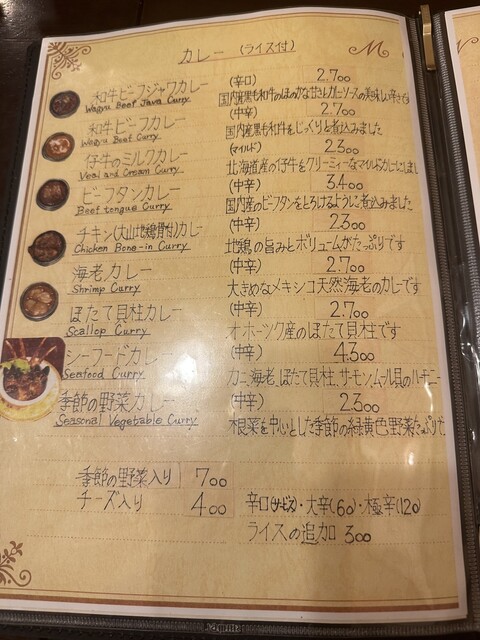 カレー (ライス付)
M
和牛ビーフジャワカレー (辛口) 2.700
Wagyu Beef Java Curry 国内産黒毛和牛のほのかな甘さとカレーソースの美味しい辛さです
和牛ビーフカレー (中辛) 2.700
Wagyu Beef Curry 国内産黒毛和牛をじっくりと煮込みました
仔牛のミルクカレー (マイルド) 2.300
Veal and Cream Curry 北海道産の仔牛をクリーミィーなマイルドカレーにしまし
ビーフタンカレー (中辛) 3.400
Beef tongue Curry 国内産のビーフタンをとろけるように煮込みました
チキン(大山地鶏骨付)カレー (中辛) 2.300
Chicken Bone-in Curry 地鶏の旨みとボリュームがたっぷりです
海老カレー (中辛) 2.700
Shrimp Curry 大きめなメキシコ天然海老のカレーです
ほたて貝柱カレー (中辛) 2.700
Scallop Curry オホーツク産のほたて貝柱です
シーフードカレー (中辛) 4.300
Seafood Curry カニ、海老、ほたて貝柱、サーモン、ムール貝のハーモニー
季節の野菜カレー (中辛) 2.300
Seasonal Vegetable Curry 根菜を中心とした季節の緑黄色野菜たっぷりで
季節の野菜入り 700
チーズ入り 400 辛口(サービス)・大辛(60)・極辛(120)
ライスの追加 300